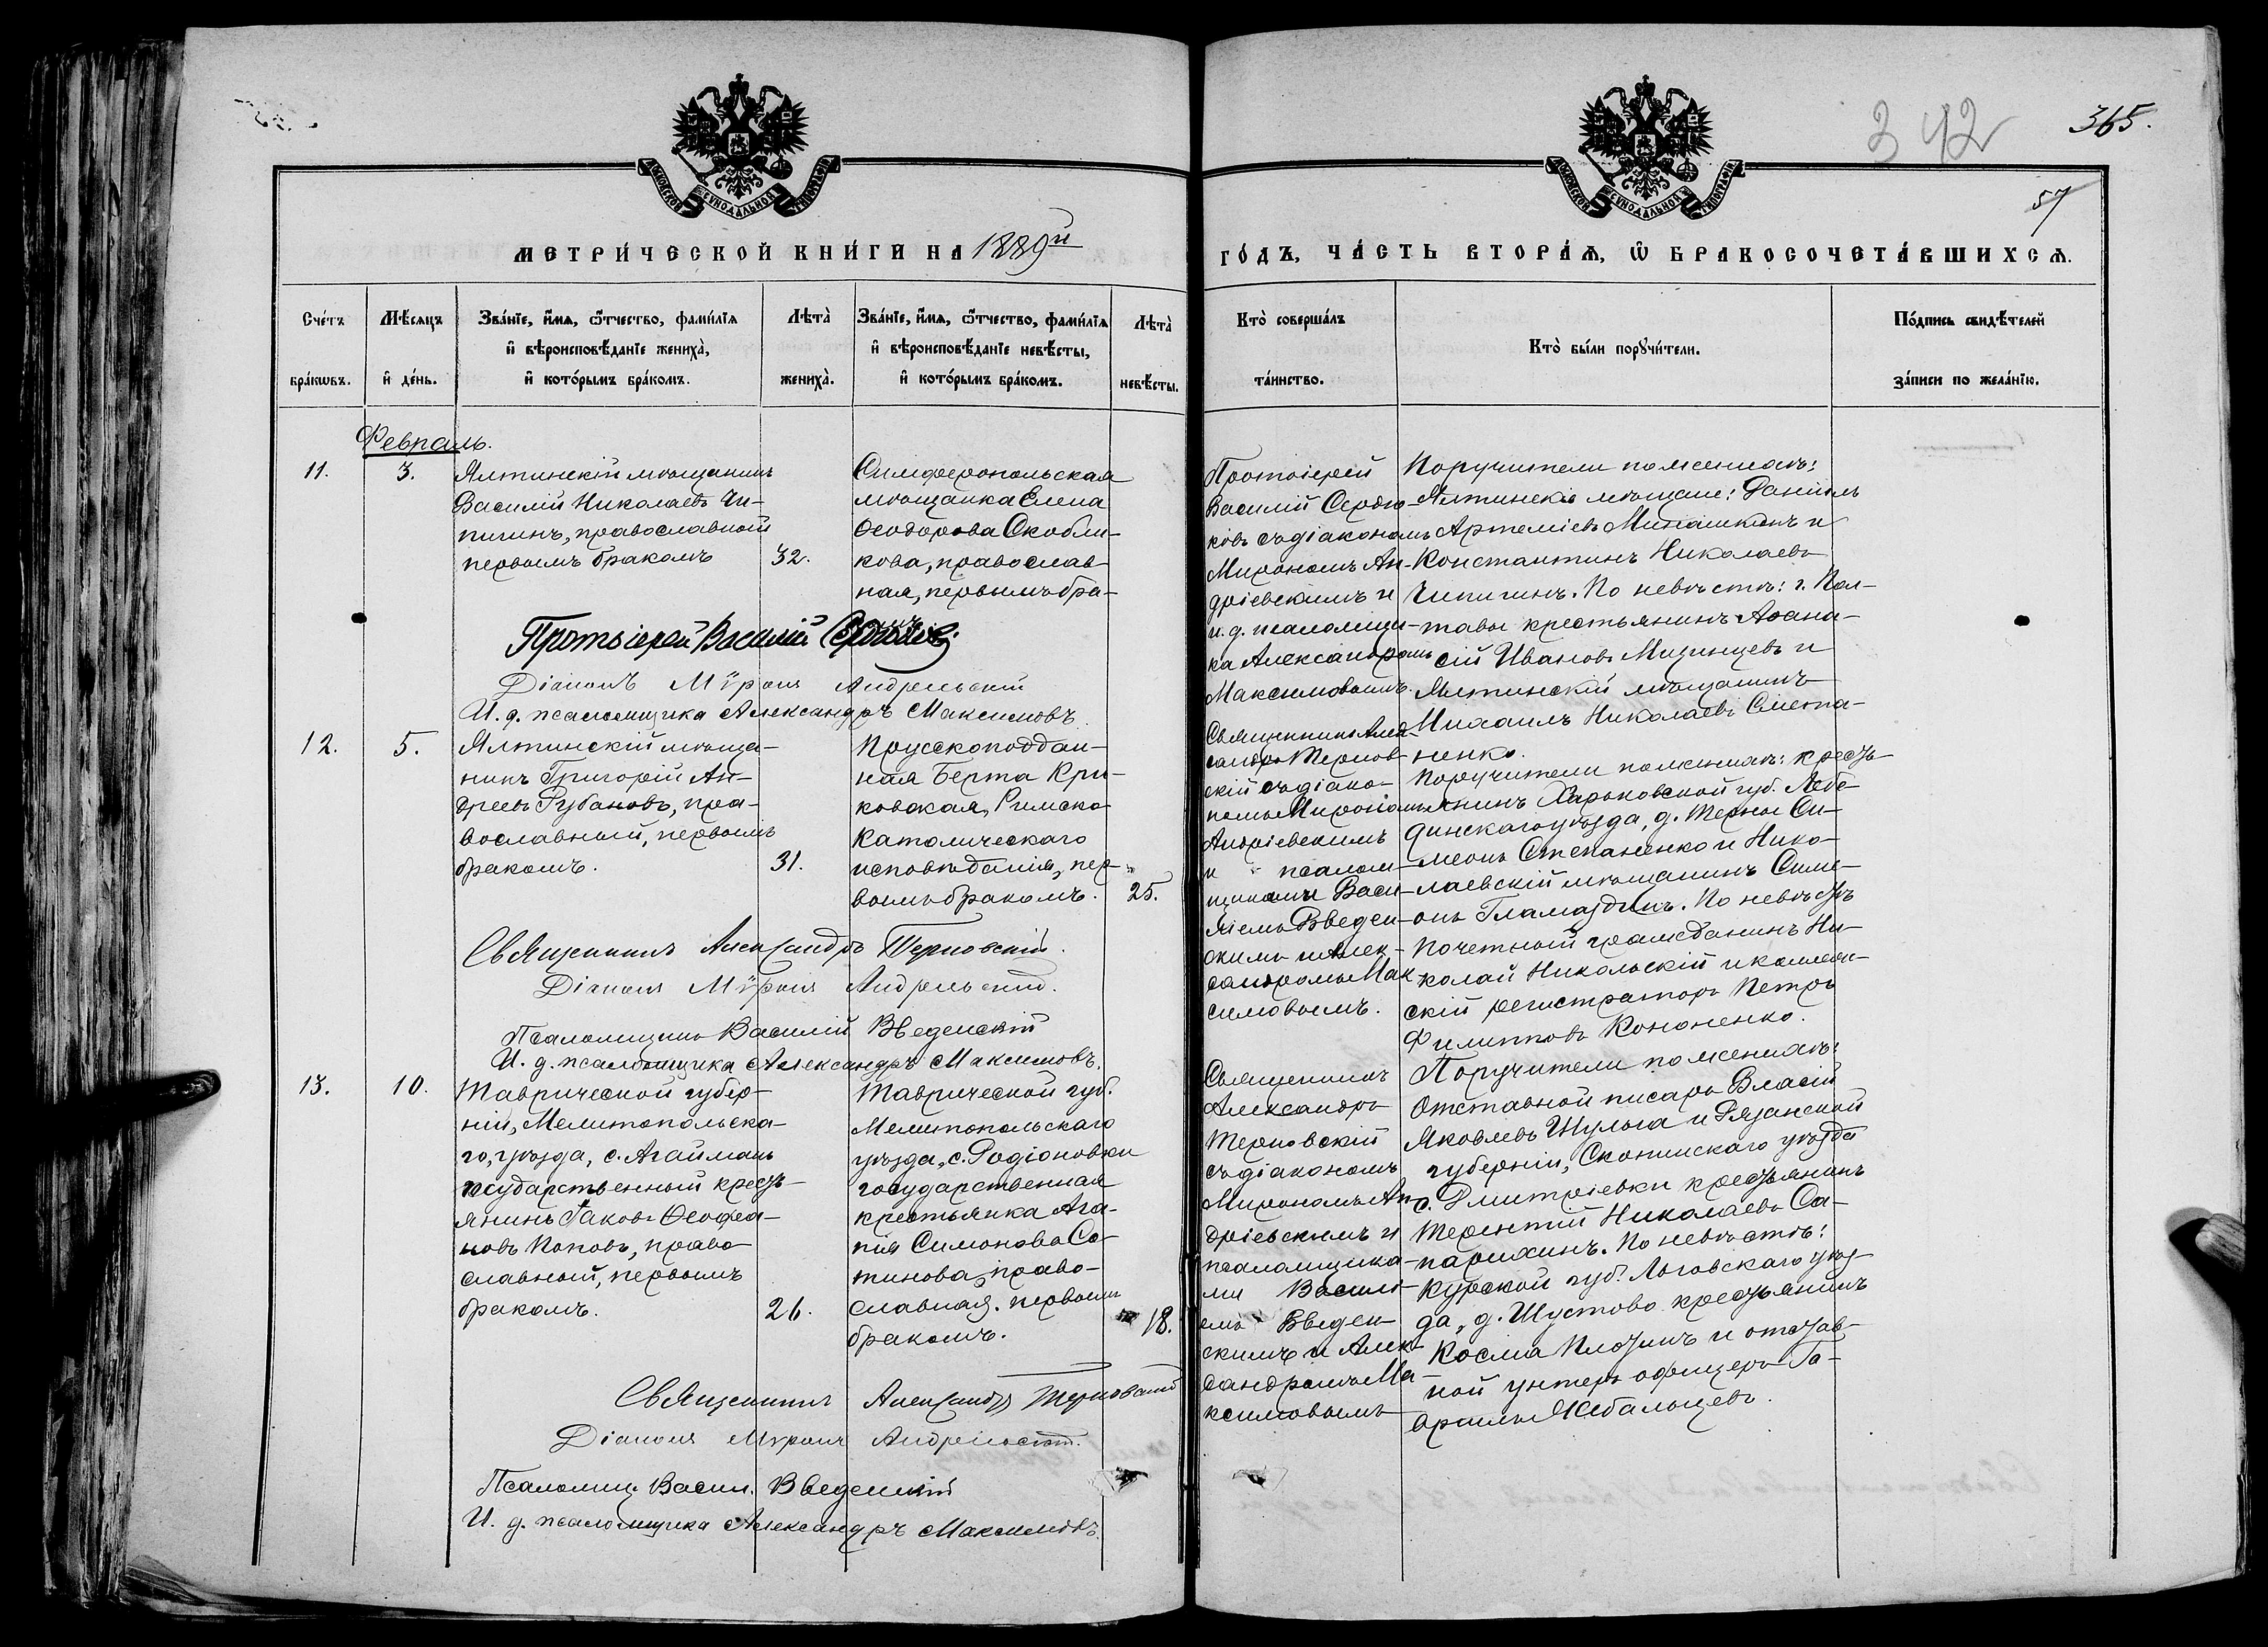 342
365.
57
МОСКОВСКОЙ СѴНОДАЛЬНОЙ ТИПОГРАФІИ
МОСКОВСКОЙ СѴНОДАЛЬНОЙ ТИПОГРАФІИ
МЕТРИ́ЧЕСКОЙ КНИ́ГИ НА 1889й
ГО́ДЪ, ЧА́СТЬ ВТОРА́Ѧ, Ѽ БРАКОСОЧЕТА́ВШИХСѦ.
Сче́тъ бра́кѡвъ.
Мѣ́сѧцъ и҆ де́нь.
Зва́нїе, и҆́мѧ, ѻ҆́тчество, фами́лїѧ
и҆ вѣроисповѣ́данїе жениха̀,
и҆ кото́рымъ бра́комъ.
Лѣта̀ жениха̀.
Зва́нїе, и҆́мѧ, ѻ҆́тчество, фами́лїѧ
и҆ вѣроисповѣ́данїе невѣ́сты,
и҆ кото́рымъ бра́комъ.
Лѣта̀ невѣ́сты.
Кто̀ соверша́лъ
та́инство.
Кто̀ бы́ли порꙋчи́тели.
По́дпись свидѣ́телей
за́писи по жела́нїю.
Февраль.
11.
3.
Ялтинскій мѣщанинъ
Василій Николаевъ Чи-
пигинъ, православный
первымъ бракомъ
32.
Симферопольская
мѣщанка Елена
Ѳеодорова Скобли-
кова, православ-
ная, первымъ бра-
Протоіерей
Василій Сердю-
ковъ съ діакономъ
Мирономъ Ан-
дріевскимъ и
и. д. псаломщи-
ка Александромъ
Максимовымъ.
Поручители по женихѣ:
Ялтинскіе мѣщане: Даніилъ
Артеміевъ Минашкинъ и
Константинъ Николаевъ
Чипигинъ. По невѣстѣ: г. Пол-
тавы крестьянинъ Аѳана-
сій Ивановъ Мизинцевъ и
Ялтинскій мѣщанинъ
Михаилъ Николаевъ Смета-
ненко.
Протоіерей Василій Сердюковъ
Діаконъ Мѵронъ Андріевскій
И. д. псаломщика Александръ Максимовъ.
12.
5.
Ялтинскій мѣща-
нинъ Григорій Ан-
дреевъ Рубановъ, пра-
вославный, первымъ
бракомъ.
31.
Прусскоподдан-
ная Берта Кри-
ковская, Римско
Католическаго
исповѣданія, пер-
вымъ бракомъ.
25.
Священникъ Алек-
сандръ Тернов-
скій съ діако-
номъ Мирономъ
Андріевскимъ
и псалом-
щиками Васи-
ліемъ Введен-
скимъ и Алек-
сандромъ Мак-
симовымъ.
Поручители по женихѣ: кресть-
янинъ Харьковской губ. Лебе-
динскаго уѣзда, д. Терны Си-
меонъ Степаненко и Нико-
лаевскій мѣщанинъ Симе-
онъ Гламаздинъ. По невѣстѣ
Почетный гражданинъ Ни-
колай Никольскій и коллеж-
скій регистраторъ Петръ
Филипповъ Кононенко.
Священникъ Александръ Терновскій.
Діаконъ Мѵронъ Андріевскій.
Псаломщикъ Василій Введенскій
И. д. псаломщика Александръ Максимовъ.
13.
10.
Таврической губер-
ніи, Мелитопольска-
го, уѣзда, с. Агайманъ
государственный кресть-
янинъ Іаковъ Ѳеофа-
новъ Поповъ, право
славный, первымъ
бракомъ.
26.
Таврической губ.
Мелитопольскаго
уѣзда, с. Родіоновки
государственная
крестьянка Ага-
пія Симонова Со-
тинова, право-
славная, первымъ
бракомъ.
18.
Священникъ
Александръ
Терновскій
съ діакономъ
Мирономъ Ан-
дріевскимъ и
псаломщика-
ми Василі-
емъ Введен-
скимъ и Алек-
сандромъ Ма-
ксимовымъ
Поручители по женихѣ:
Отставной писарь Власій
Яковлевъ Шульга и Рязанской
губерніи, Скопинскаго уѣзда
с. Дмитріевки крестьянинъ
Терентій Николаевъ Са-
парихинъ. По невѣстѣ:
Курской губ. Льговскаго уѣз-
да, д. Шустово крестьянинъ
Косма Плотинъ и отстав-
ной унтеръ офицеръ Га-
вріилъ Жебальцевъ.
Священникъ Александръ Терновскій
Діаконъ Мѵронъ Андріевскій.
Псаломщ. Васил. Введенскій
И. д. псаломщика Александръ Максимовъ.